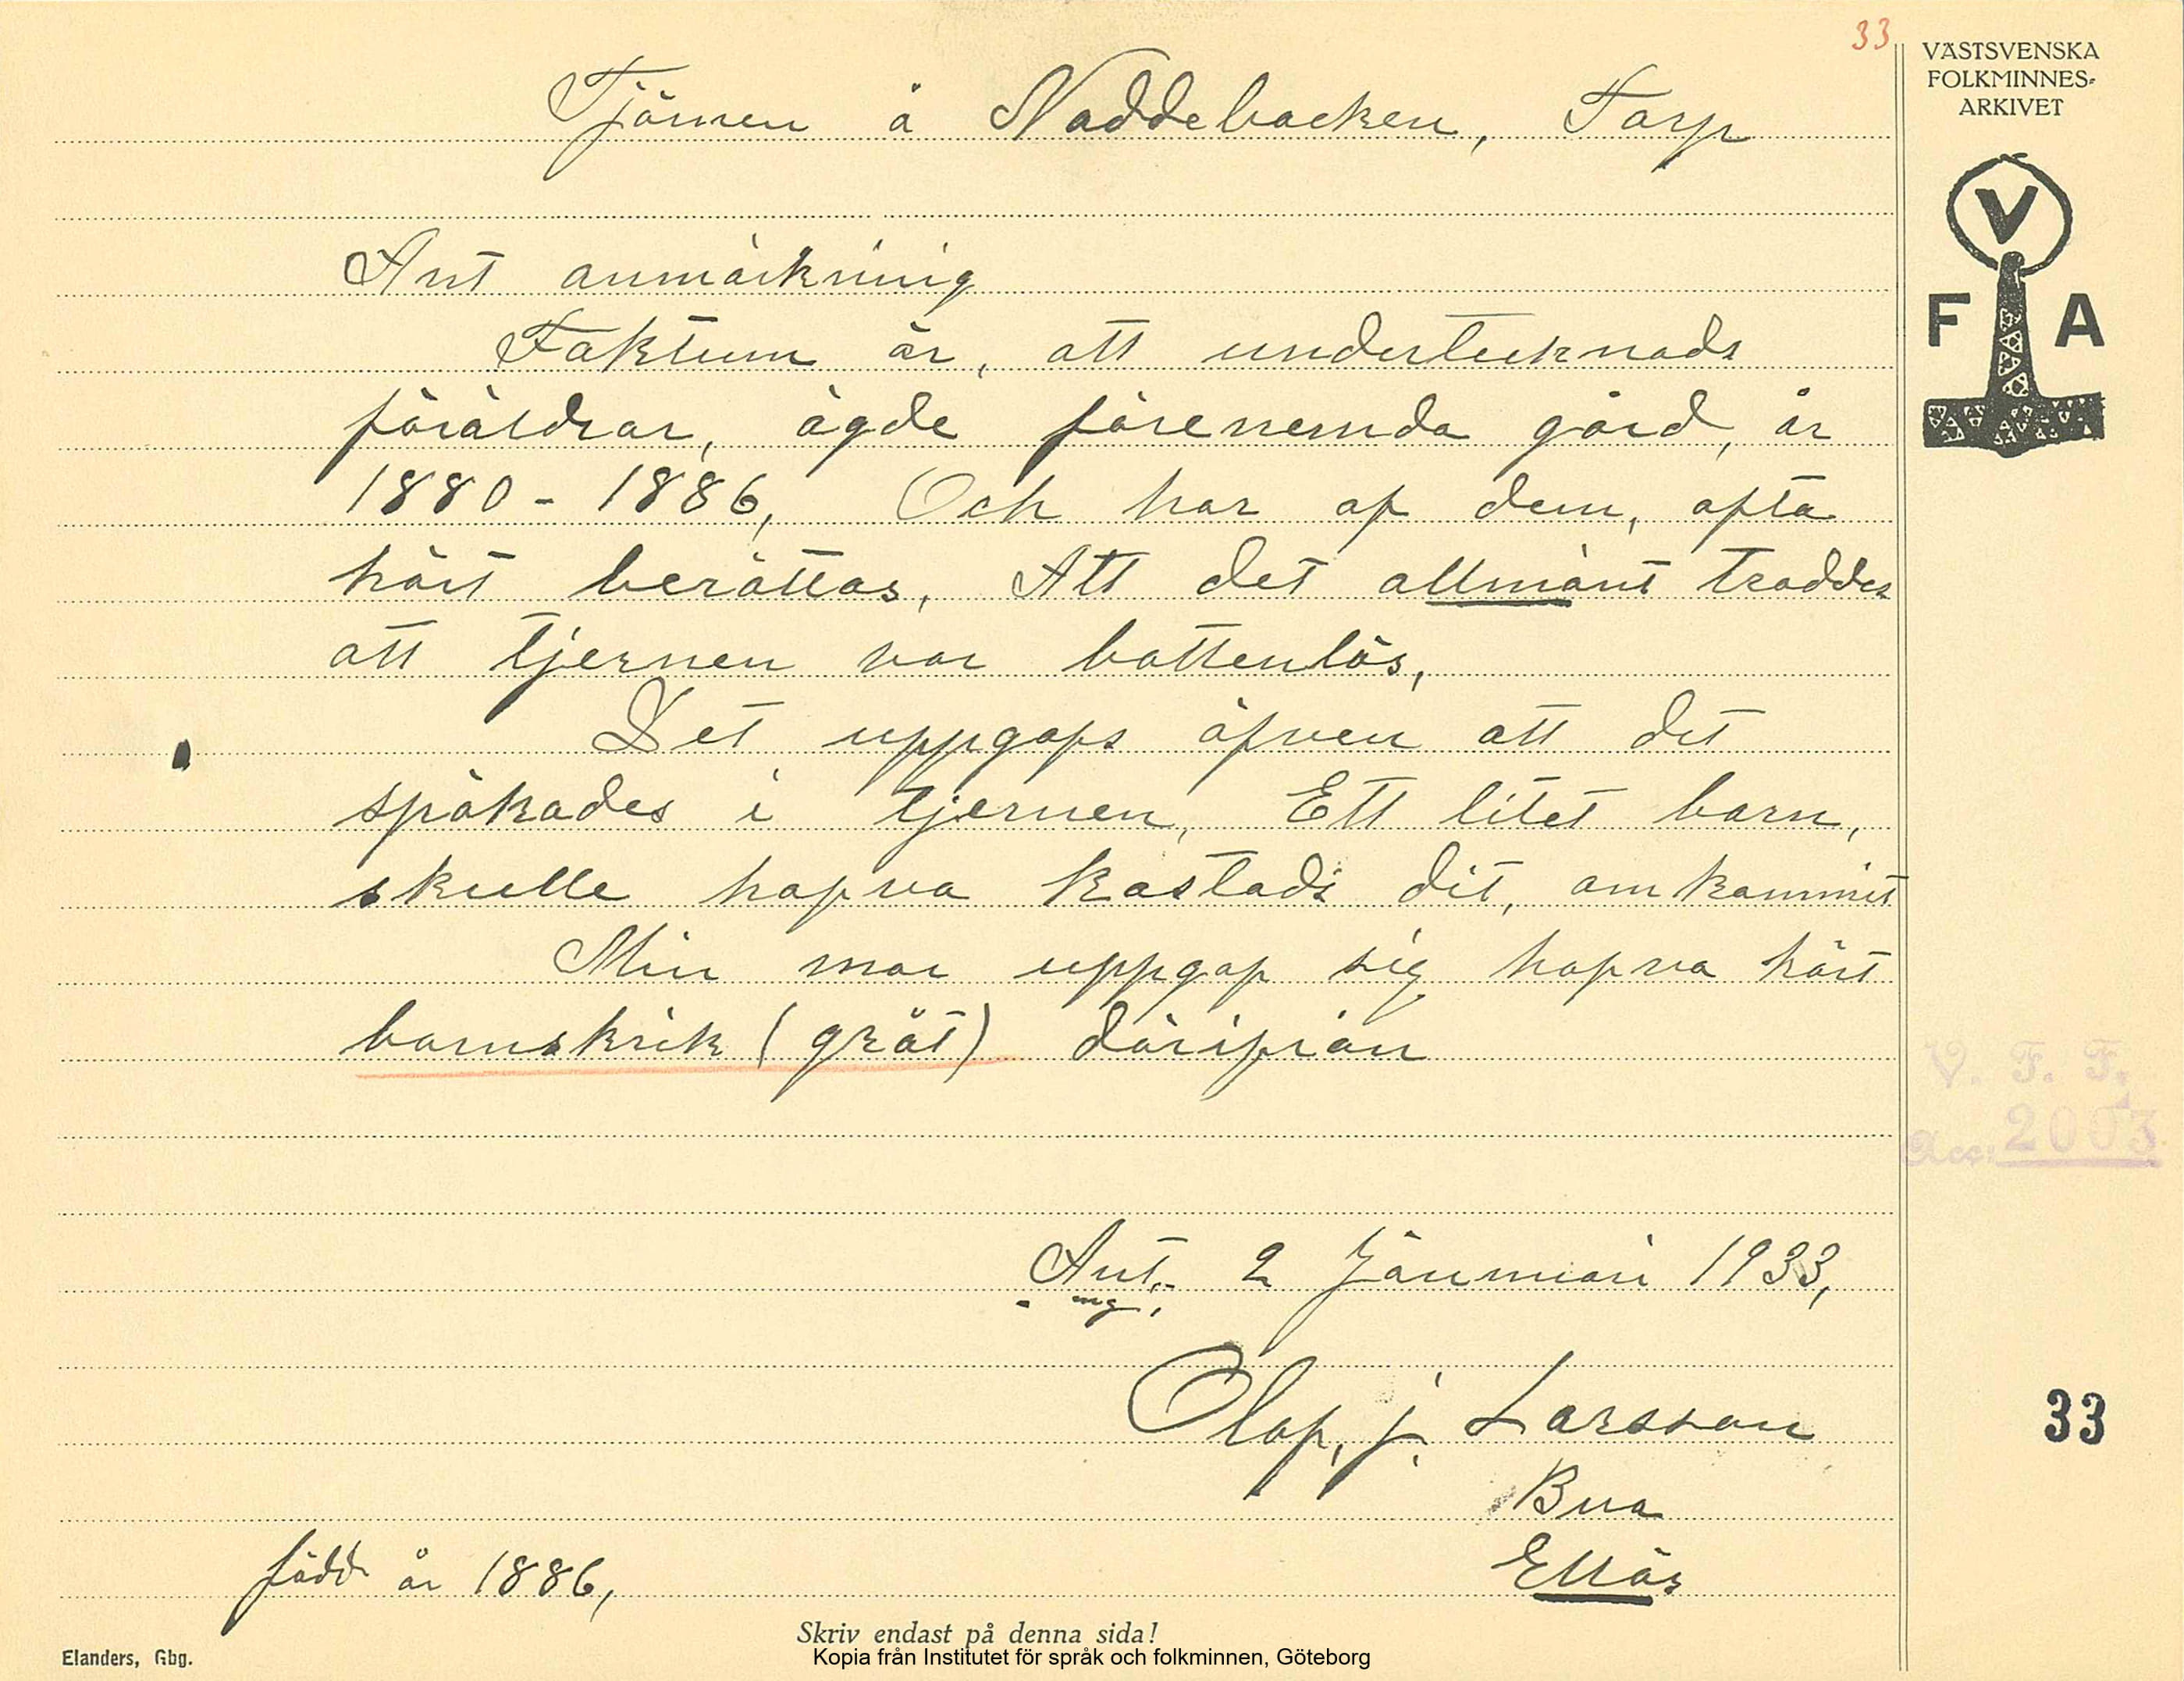 33
VÄSTSVENSKA
FOLKMINNES-
ARKIVET
V
F A
Tjärnen å Naddebacken, Torp
Ant anmärkning
Faktum är, att undertecknads
föräldrar, ägde förenemda gård, år
1880 - 1886, Och har af dem, ofta
hört berättas, Att det allmänt troddes
att tjernen var bottenlös,
Det uppgafs äfven att det
spökades i tjernen, Ett litet barn,
skulle hafva kastads dit, omkommit
Min mor uppgaf sig hafva hört
barnskrik (gråt) därifrån
V. F. F.
Acc:
Ant. 2 Januari 1933,
Olof, j. Larsson
33
Bua
Ellös
född år 1886,
Skriv endast på denna sida!
Elanders, Gbg.
Kopia från Institutet för språk och folkminnen, Göteborg